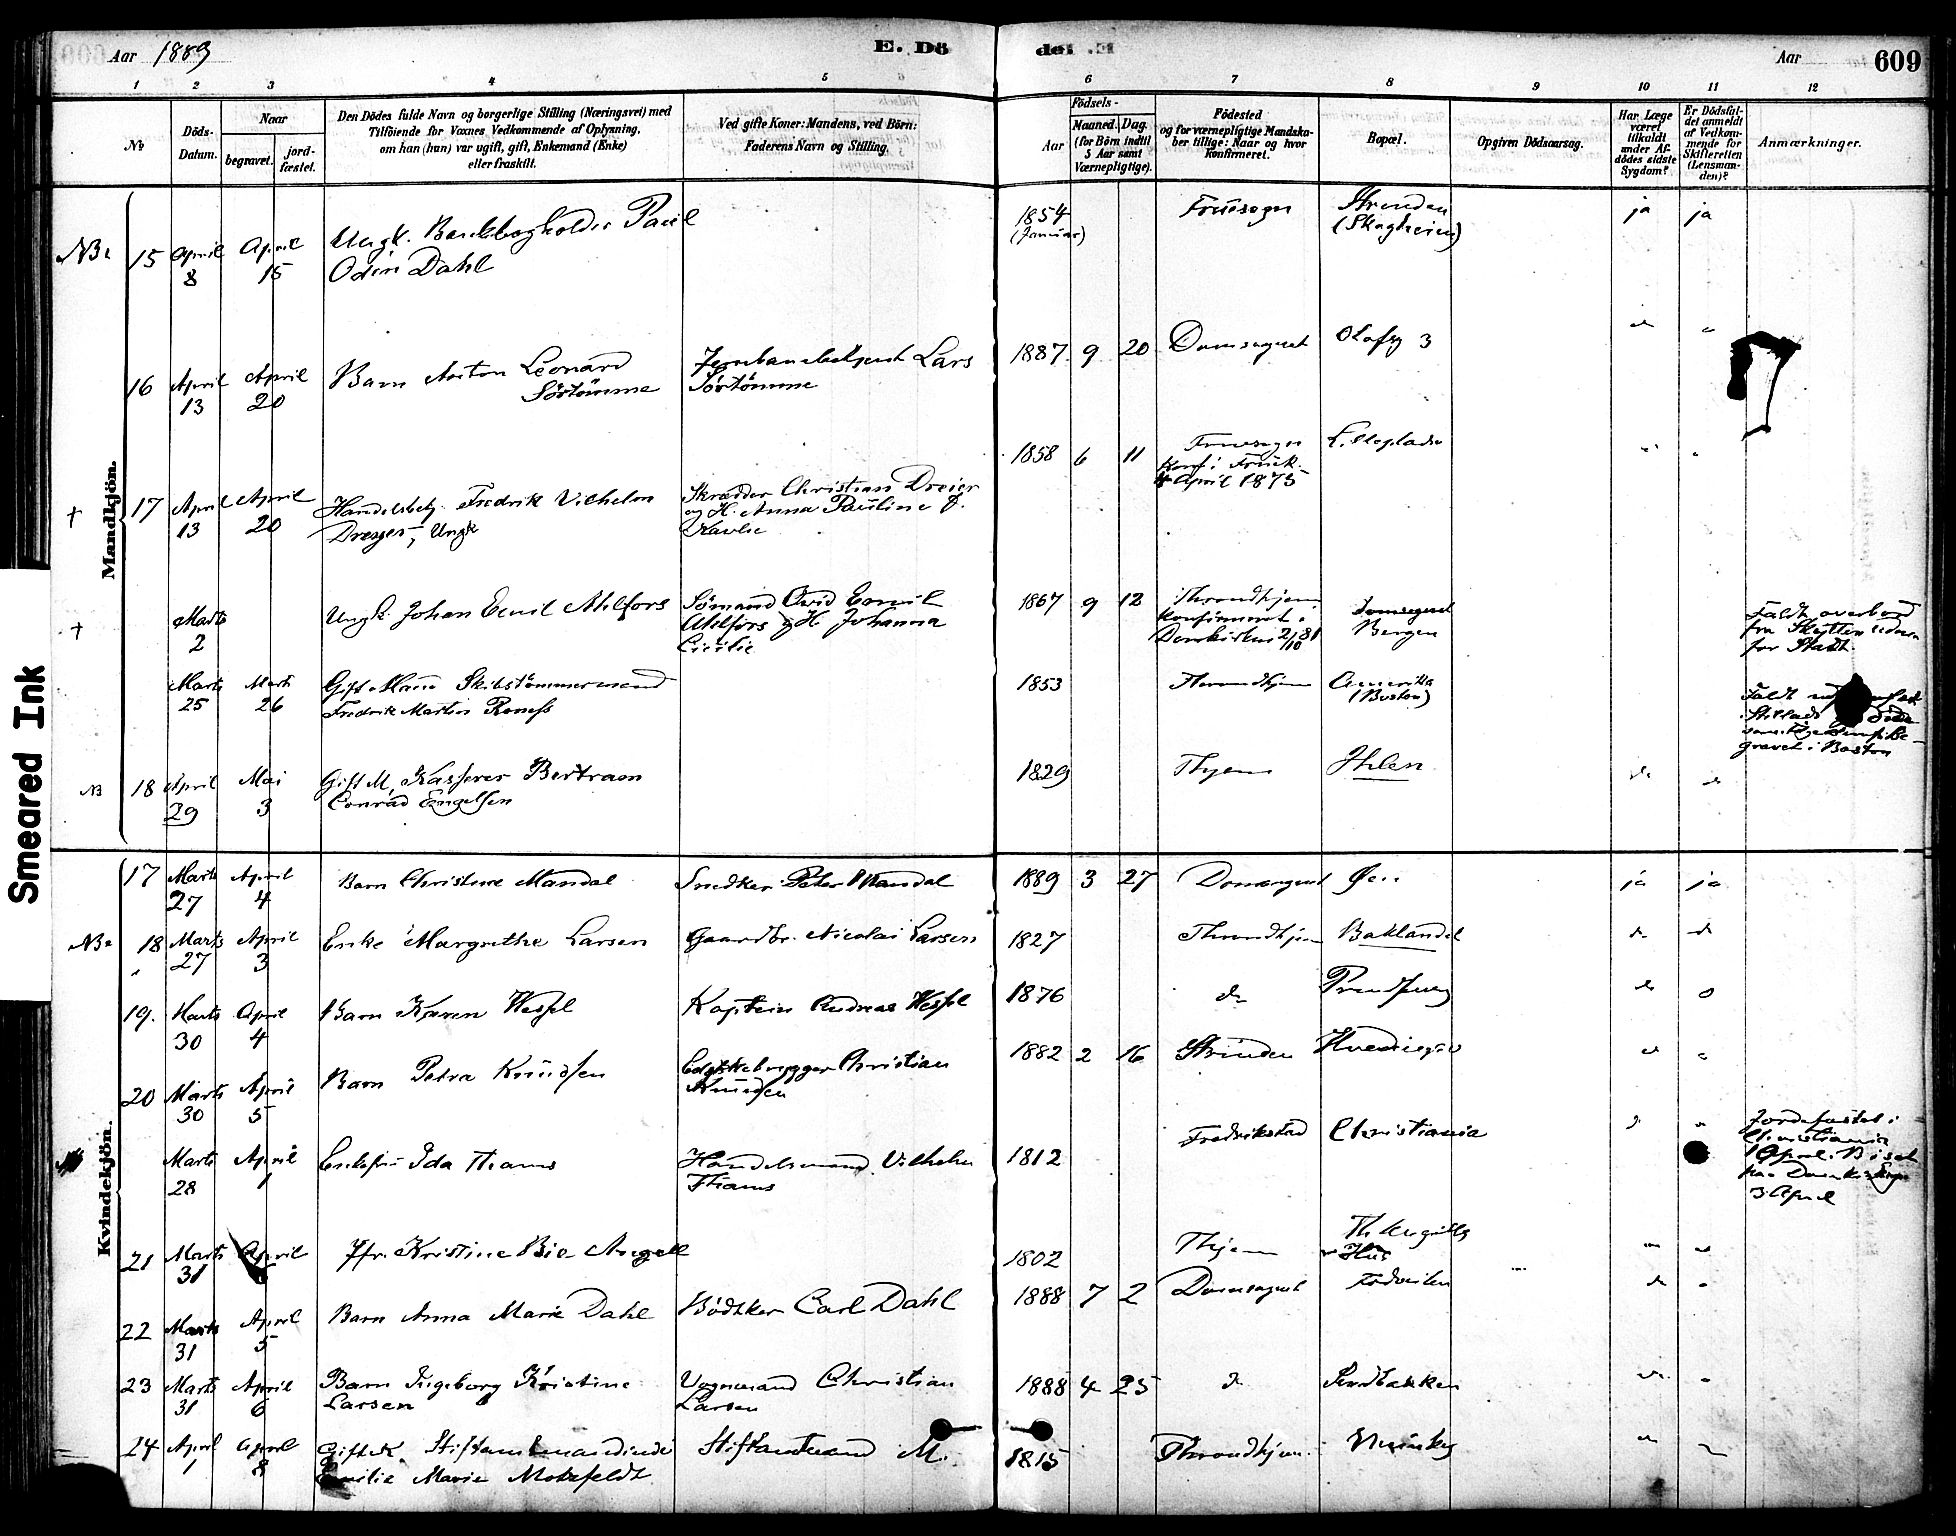 Aar 1889
E. Dö
de. E.
Aar
609
1 2 3 4 5 6 7 8 9 10 11 12
No
Döds-
Datum.
Naar
begravet.
jord-
fæstet.
Den Dödes fulde Navn og borgerlige Stilling (Næringsvei) med
Tilföiende for Voxnes Vedkommende af Oplysning,
om han (hun) var ugift, gift, Enkemand (Enke)
eller fraskilt.
Ved gifte Koner: Mandens, ved Börn:
Faderens Navn og Stilling.
Födsels-
Aar
Maaned. Dag.
(for Börn indtil
5 Aar samt
Værnepligtige).
Födested
og for værnepligtige Mandska-
ber tillige: Naar og hvor
Konfirmeret.
Bopæl.
Opgiven Dödsaarsag.
Har Læge
været
tilkaldt
under Af-
dödes sidste
Sygdom?
Er Dödsfal-
det anmeldt
af Vedkom-
mende for
Skifteretten
(Lensman-
den)?
Anmærkninger.
Smeared Ink
Mandkjön.
NB. 15 April 8 April 15 Ungk. Bankbogholder Paul
Odin Dahl
1854
(Januar)
Fruesogn Strinden
(Skygheim)
ja ja
16 April 13 April 20 Barn Anton Leonard
Sörtömme
Jernbanebetjent Lars
Sörtömme
1887 9 20 Domsognet Olafsg 3
17 April 13 April 20 Handelsbetj. Fredrik Vilhelm
Dreyer, Ungk
Skrædder Christian Dreier
og H. Anna Pauline J.
Kavlie
1858 6 11 Fruesogn
Konf i Fruek.
April 1873
Lilleplads
Marts 2 Ungk. Johan Emil Ahlfors
Sömand Ovid Emil
Ahlfors og H. Johanna
Cicilie
1867 9 12 Throndhjem
Konfirmeret i
Domkirken 2/10 81
Domsognet
Bergen
Faldt overbord
fra Skytten udenfor
for Stadt.
Marts 25 Marts 26 Gift Mand Skibstömmermand
Fredrik Martin Roness
1853 Throndhjem Amerika
(Boston)
Faldt
Stillads döde
gravet i Boston
NB 18 April 29 Mai 3 Gift M, Kasserer Bertram
Conrad Engelsen
1829 Thjem Ihlen
Kvindekjön.
17 Marts 27 April 4 Barn Christine Mandal Snedker Peter Mandal 1889 3 27 Domsognet Öen ja ja
NB. 18 Marts 27 April 3 Enke Margrethe Larsen Gaardbr. Nicolai Larsen 1827 Throndhjem Baklandet do do
19. Marts 30 April 4 Barn Karen Wessel Kaptein Andreas Wessel 1876 do
20 Marts 30 April 5 Barn Petra Knudsen
Eddikebrygger Christian
Knudsen
1882 2 16 Strinden
Marts 28 April 1 Enkefru Ida Thams
Handelsmand Vilhelm
Thams
1812 Fredrikstad Christiania
Jordfæstet i
Christiania
1 April. Bisat
fra Domkirken
3 April
21 Marts 31 April Jfr. Kristine Bie Angell 1802 Thjem Th. Angells
Hus
22 Marts 31 April 5 Barn Anna Marie Dahl Bödker Carl Dahl 1888 7 2 Domsognet
23 Marts 31 April 6 Barn Ingeborg Kristine
Larsen
Vognmand Christian
Larsen
1888 4 25 do Sandbakken
24 April 1 April 8 Gift K. Stiftamtmandinde
Emilie Marie Motzfeldt
Stiftamtmand M. 1815 Throndhjem Munkeg